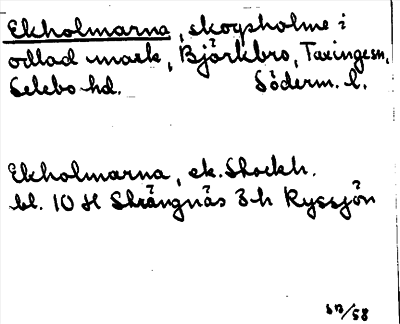 Ekholmarna, skogsholme i
odlad mark, Björkbro, Taxinge sn,
Selebo hd. Söderm. l.
Ekholmarna, ek. Stockh.
bl. 10 H Strängnäs 3 h Ryssjön
/58